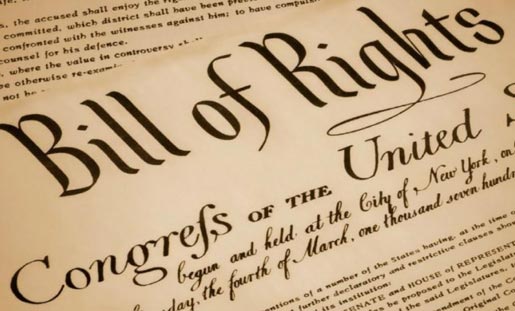 s, the accused shall enjoy the
committed, which district shall have been
confronted with the witnesses against him; to have
counsel for his defence.
where the value in controversy
be otherwise
not be
Bill of Rights
Congreſs OF THE United
begun and held at the City of New York, on
the fourth of March, one thousand seven
of a number of the States having, at the time
further declaratory and restrictive clauses
its institution:
SENATE and HOUSE of
be proposed to the
of the said Legislatures,
of the
Original